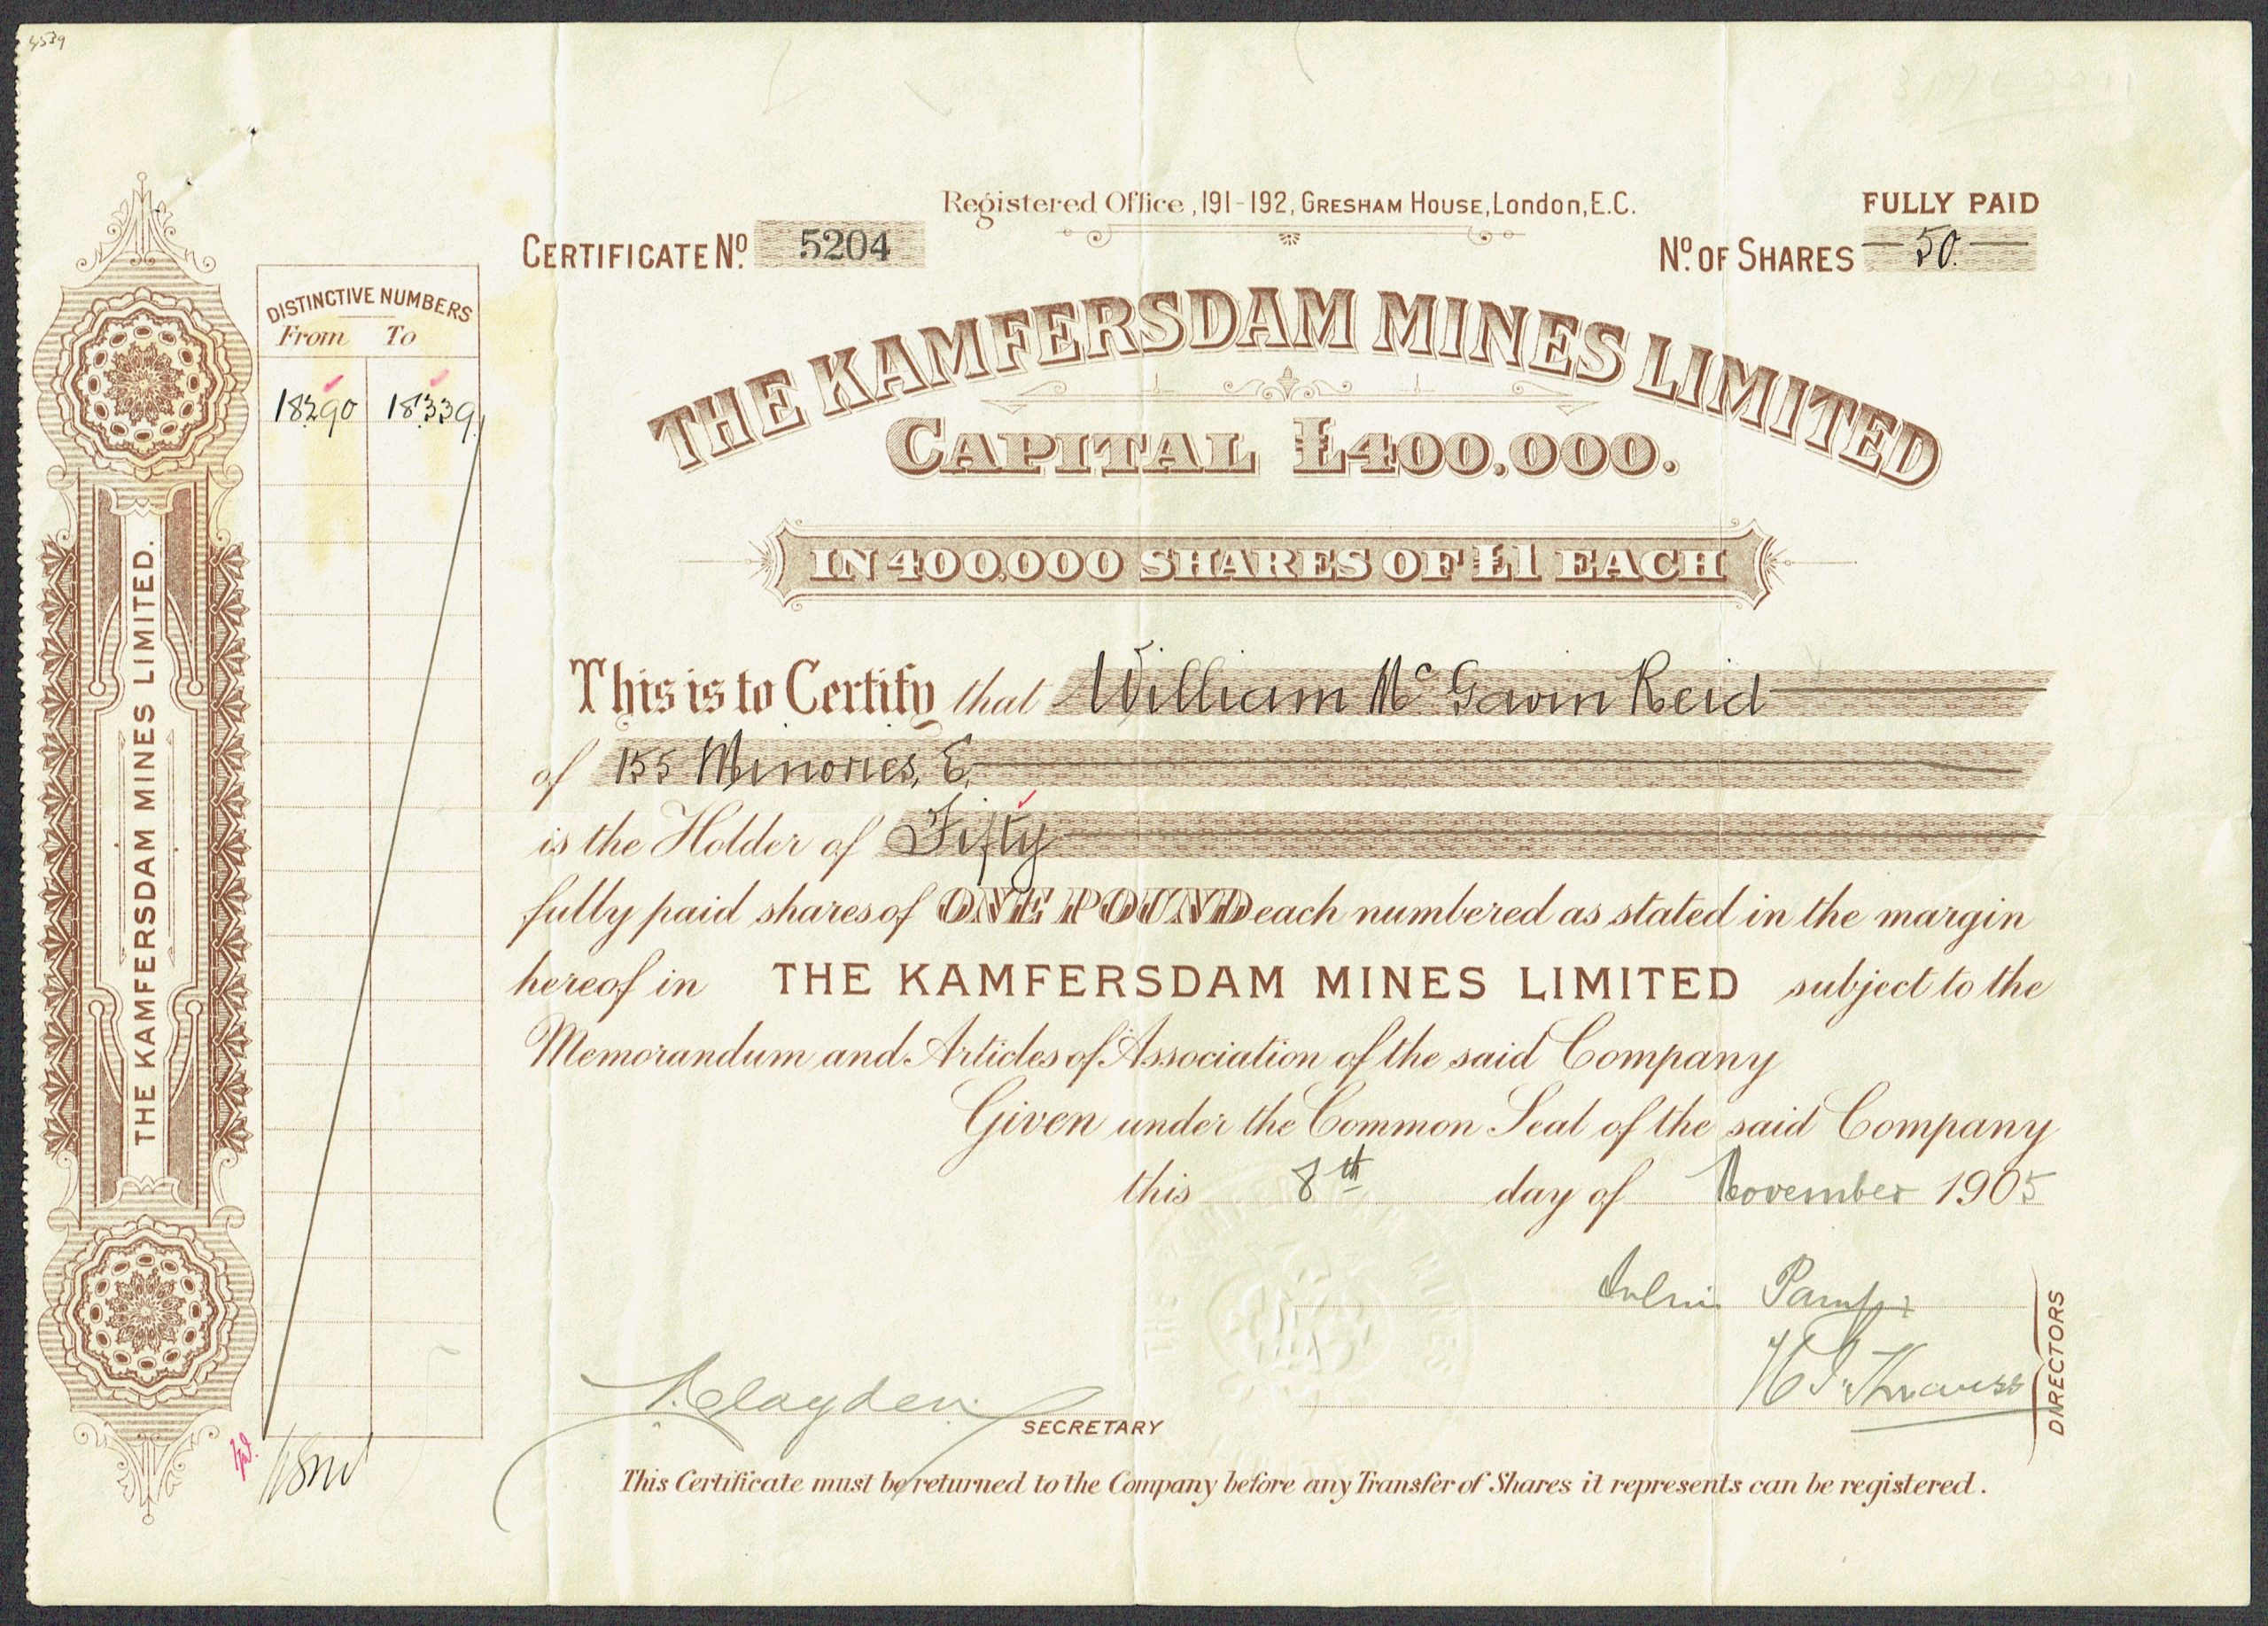 4539
Registered Office, 191-192, GRESHAM HOUSE, London, E.C.
FULLY PAID
CERTIFICATE Nº. 5204
Nº. OF SHARES 50.
THE KAMFERSDAM MINES LIMITED
CAPITAL £400,000.
IN 400,000 SHARES OF £1 EACH
DISTINCTIVE NUMBERS
From To
18290 18339
THE KAMFERSDAM MINES LIMITED.
This is to Certify that William Mc Gavin Reid
of 155 Minories, E.
is the Holder of Fifty
fully paid shares of ONE POUND each numbered as stated in the margin
hereof in THE KAMFERSDAM MINES LIMITED subject to the
Memorandum and Articles of Association of the said Company
Given under the Common Seal of the said Company
this 8th day of November 1905
THE KAMFERSDAM MINES
Clayden
SECRETARY
Krauss
DIRECTORS
This Certificate must be returned to the Company before any Transfer of Shares it represents can be registered.